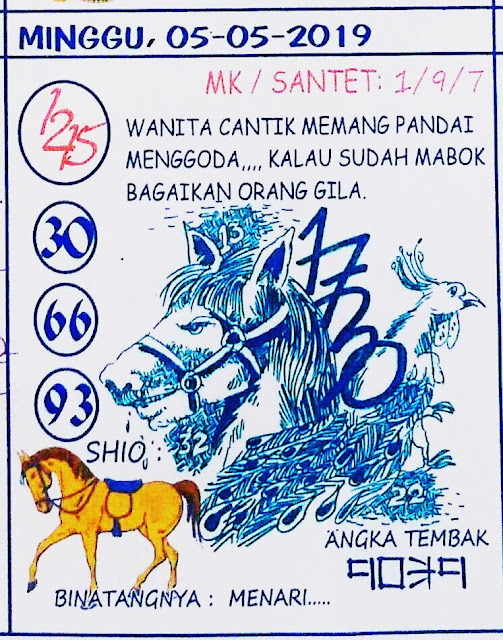 MINGGU, 05-05-2019
MK / SANTET: 1/9/7
WANITA CANTIK MEMANG PANDAI
MENGGODA,,,, KALAU SUDAH MABOK
BAGAIKAN ORANG GILA.
30
66
93
13
32
22
SHIO :
ANGKA TEMBAK
BINATANGNYA : MENARI.....